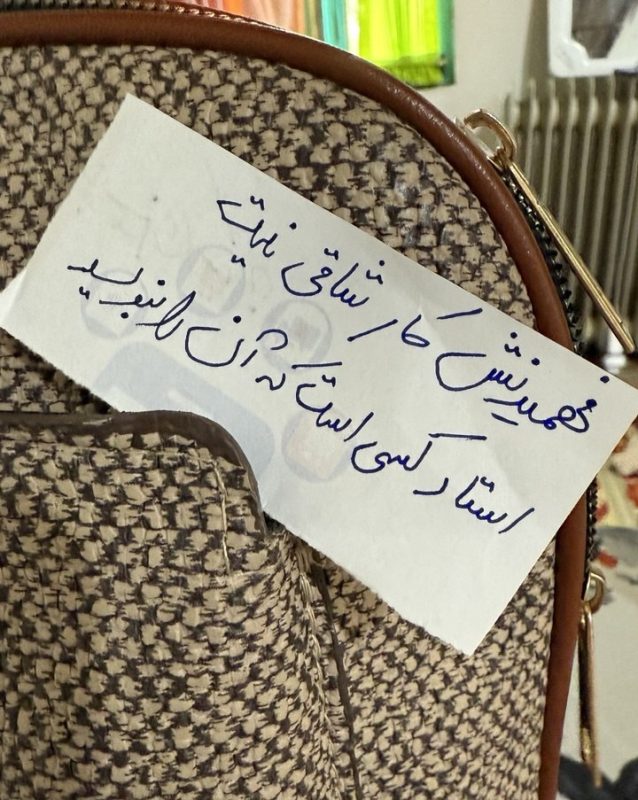 فهمیدنش کار شاقی نیست
استاد کسی است که آن را بنویسد